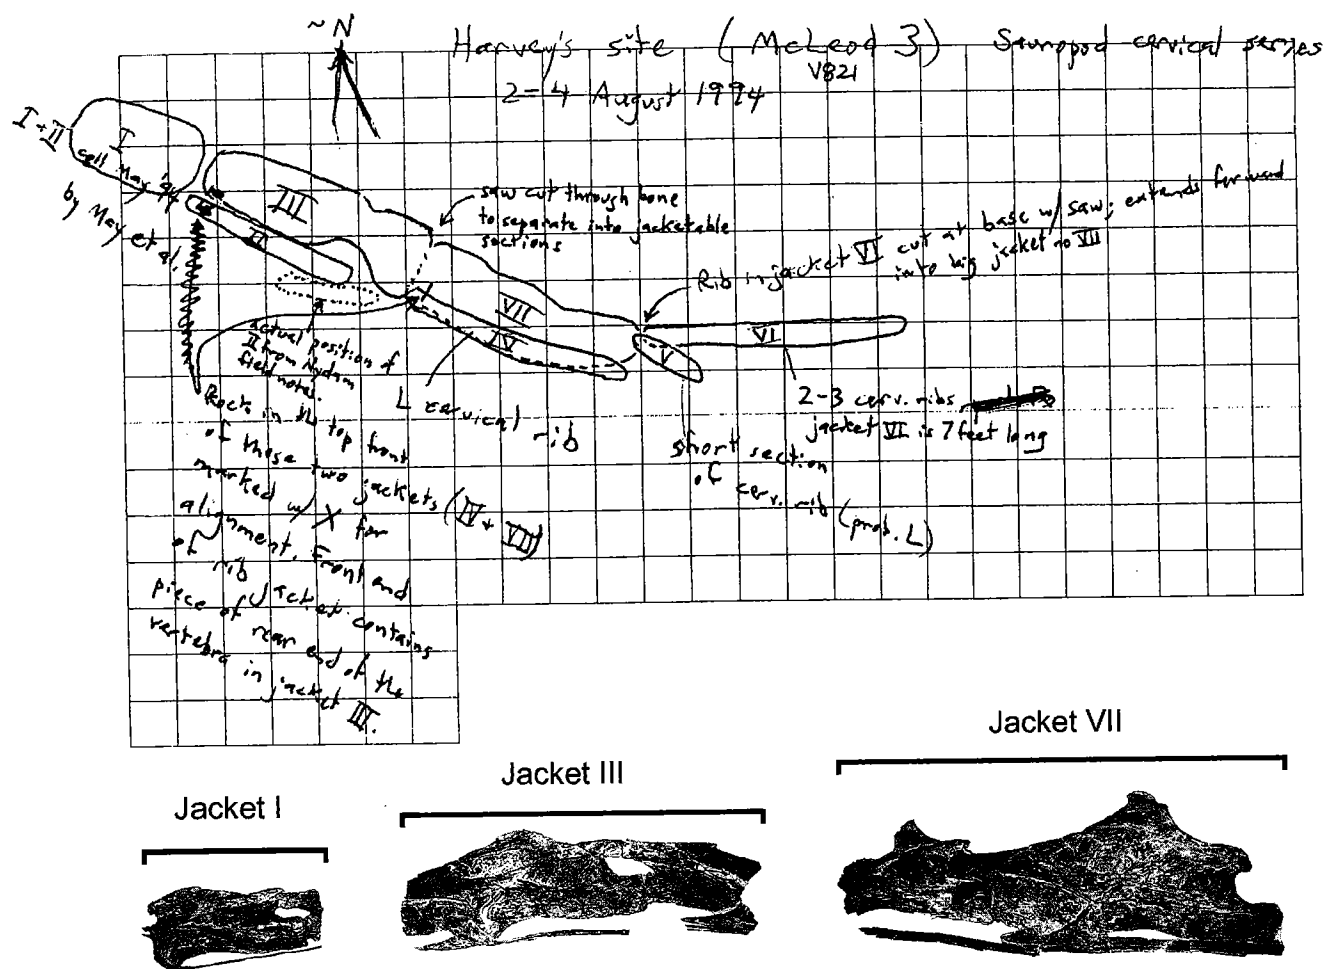 ~N
Harvey's site (McLeod 3) Sauropod cervical series
V821
2-4 August 1994
I + II
coll May '94
by May et al.
I
III
II
saw cut through bone
to separate into jacketable
sections
Rib in jacket VI cut at base w/ saw; extends forward
into big jacket no VII
VII
IV
V
VI
actual position of
II from Nydam
fieldnotes.
L cervical rib
2-3 cerv. ribs
jacket VI is 7 feet long
short section
of cerv. rib (prob. L)
Rocks in top front
of those two jackets (IV + VII)
marked w/ X for
alignment. Front end
of rib jacket contains
piece of rear end of the
vertebra in jacket III.
Jacket I
Jacket III
Jacket VII